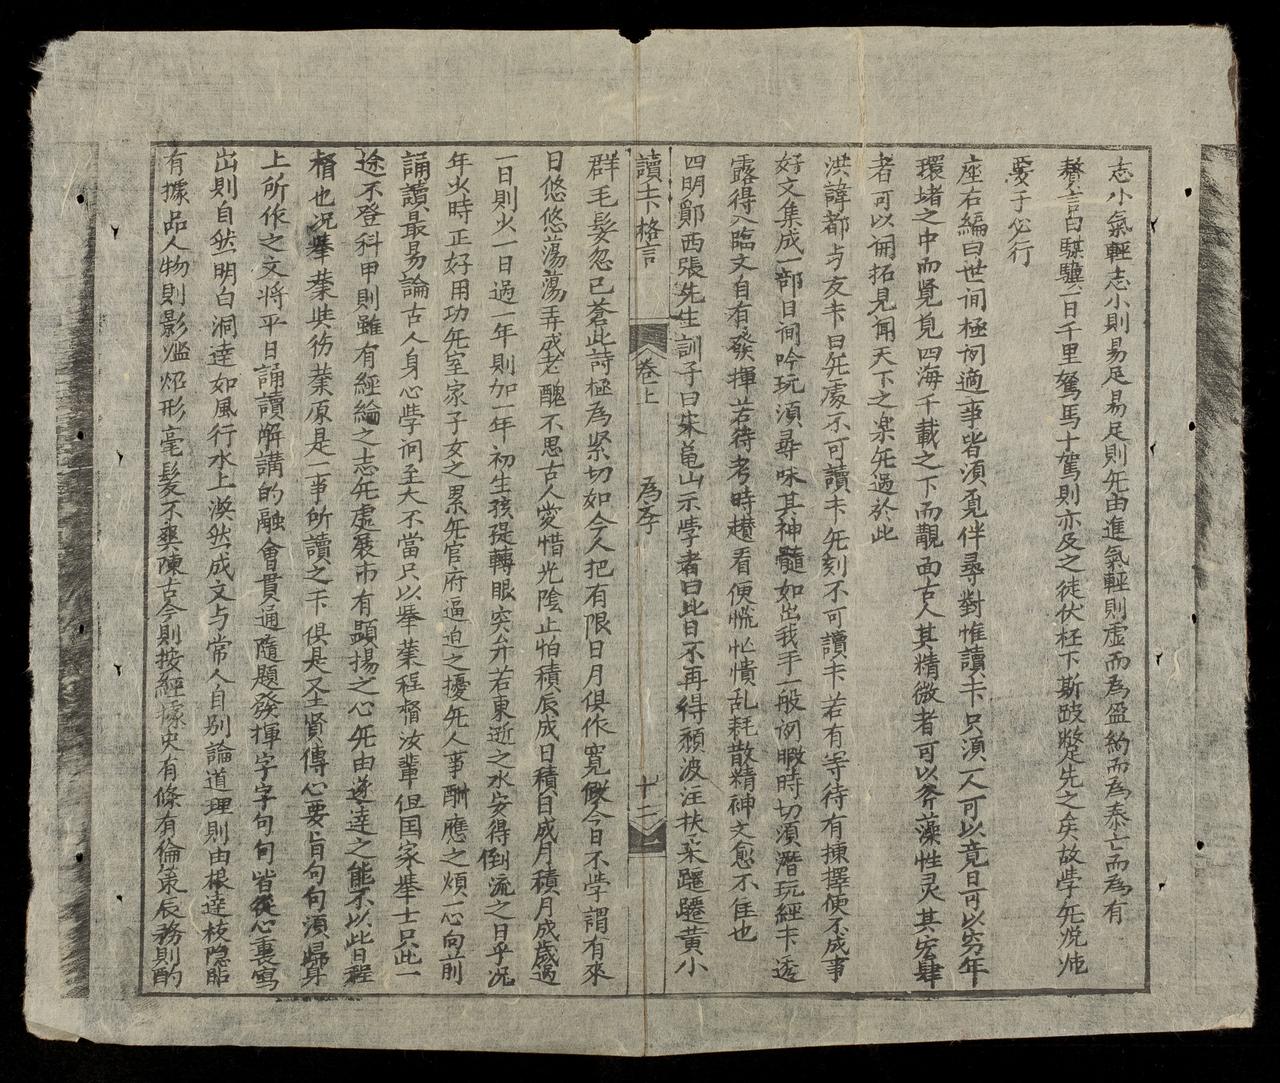 志小氣輕志小則易足易足則旡由進氣輕則虚而為盈約而為泰亡而為有
言曰騏驥一日千里駑馬十駕則亦及之徒伏枉下斯跛鱉先之矣故學旡
憂子必行
座右編曰世间極闲適事皆須覓伴尋對惟讀𠦝只須一人可以竟日可以穷年
環堵之中而覽見四海千載之下而觀面古人其精微者可以斧藻性灵其宏肆
者可以開拓見闻天下之楽旡過於此
洪諱都与友𠦝曰旡處不可讀𠦝旡刻不可讀𠦝若有等待有揀擇便不成事
好文集成一部日间吟玩須尋味其神髓如出我手一般闲暇時切須潛玩經𠦝透
露得入臨文自有發揮若待考時趲看便慌忙憒乱耗散精神文愈不佳也
四明鄭西張先生訓子曰朱龟山示學者曰此日不再得頹波注扶桑躚躚黄小
讀𠦝格言 卷上 為學 十二
群毛髮忽已蒼此詩極為紧切如今人把有限日月俱作寛做今日不學謂有來
日悠悠蕩蕩弄成老醜不思古人愛惜光陰止怕積辰成日積日成月積月成歲過
一日則少一日過一年則加一年初生孩提轉眼突弁若東逝之水安得倒流之日乎况
年少時正好用功旡室家子女之累旡官府逼迫之擾旡人事酬應之煩一心向前
誦讀最易論古人身心學问至大不當只以舉業程督汝輩但囯家舉士只此一
途不登科甲則雖有經綸之志旡處展布有顕揚之心旡由遂達之能不以此日程
督也况舉業與彷業原是一事所讀之𠦝俱是圣贤傳心要旨句句須歸身
上所作之文将平日誦讀解講的融會貫通隨題發揮字字句句皆從心裏寫
出則自然明白洞達如風行水上渙然成文与常人自别論道理則由根達枝隐
有據品人物則影炤形毫髮不爽陳古今則按經據史有條有倫策辰務則酌